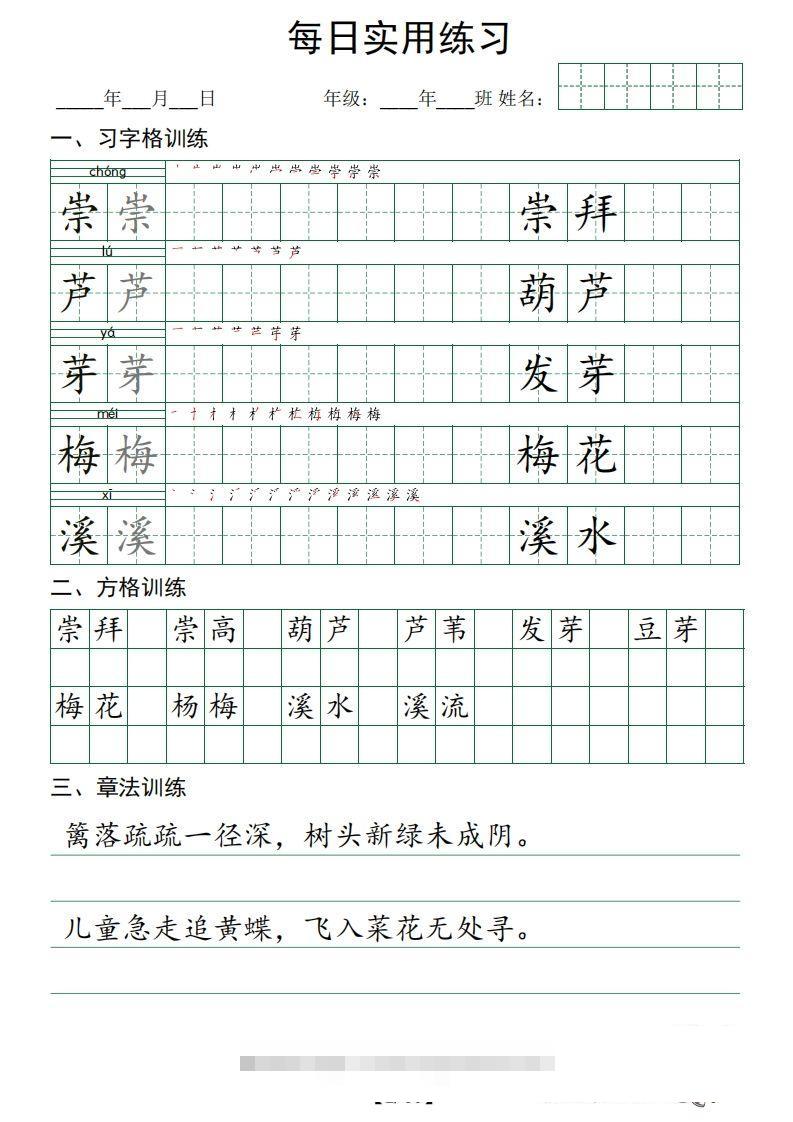 每日实用练习
_____年___月___日 年级：____年____班 姓名：
一、习字格训练
chóng
崇 崇 崇 拜
lú
芦 芦 葫 芦
yá
芽 芽 发 芽
méi
梅 梅 梅 花
xī
溪 溪 溪 水
二、方格训练
崇拜 崇高 葫芦 芦苇 发芽 豆芽
梅花 杨梅 溪水 溪流
三、章法训练
篱落疏疏一径深，树头新绿未成阴。
儿童急走追黄蝶，飞入菜花无处寻。